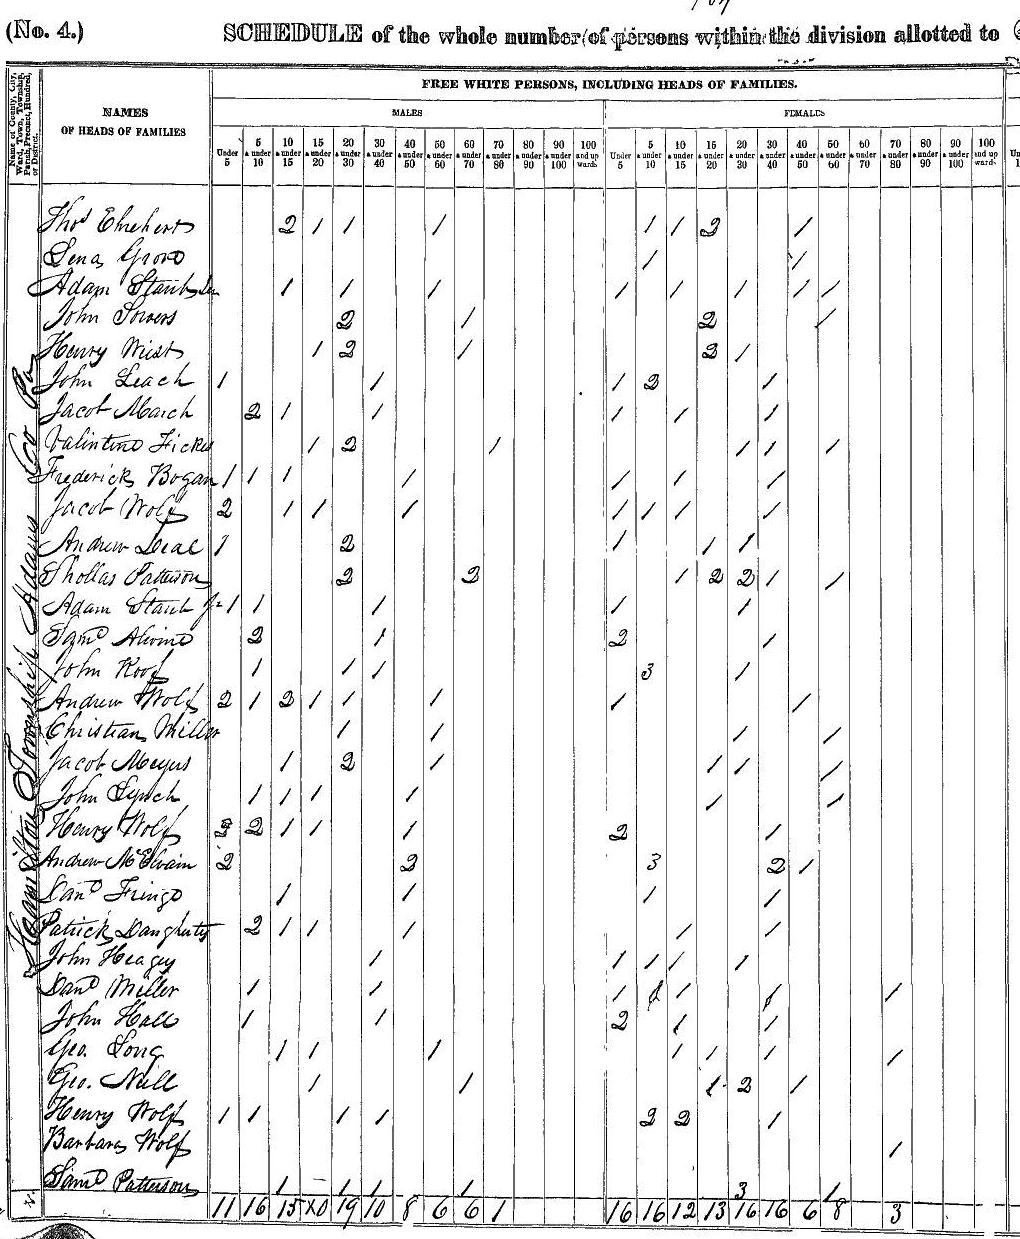 (No. 4.) SCHEDULE of the whole number of persons within the division allotted to
Name of County, City, Ward, Town, Township, Parish, Precinct, Hundred, or District.
NAMES
OF HEADS OF FAMILIES
FREE WHITE PERSONS, INCLUDING HEADS OF FAMILIES.
MALES FEMALES
Under 5 | 5 & under 10 | 10 & under 15 | 15 & under 20 | 20 & under 30 | 30 & under 40 | 40 & under 50 | 50 & under 60 | 60 & under 70 | 70 & under 80 | 80 & under 90 | 90 & under 100 | 100 and upwards | Under 5 | 5 & under 10 | 10 & under 15 | 15 & under 20 | 20 & under 30 | 30 & under 40 | 40 & under 50 | 50 & under 60 | 60 & under 70 | 70 & under 80 | 80 & under 90 | 90 & under 100 | 100 and upwards
Hamilton Township Adams Co Pa
Thos Ehrehert 2 1 1 1 1 1 2 1
Lena Grove 1 1
Adam Staub Sen 1 1 1 1 1 1 1 1
John Sowers 2 1 2 1
Henry Wiest 1 2 1 2 1
John Leach 1 1 1 2 1
Jacob March 2 1 1 1 1 1
Valintine Fickes 1 2 1 1 1 1
Frederick Bogan 1 1 1 1 1 1 1
Jacob Wolf 2 1 1 1 1 1 1 1
Andrew Deal 1 2 1 1 1
Patterson 2 2 1 2 2 1 1
Adam Staub Jr 1 1 1 1 1
Saml 2 1 2 1
John Roof 1 1 1 3 1
Andrew Wolf 2 1 2 1 1 1 1 1
Christian Miller 1 1 1 1
Jacob Meyers 1 2 1 1 1 1
John Lynch 1 1 1 1 1 1
Henry Wolf 2 1 1 1 2 1
Andrew McElwain 2 2 3 2 1
Danl Fringo 1 1 1 1
Patrick Daugherty 2 1 1 1 1 1
John Heagey 1 1 1 1 1
Danl Miller 1 1 1 1 1 1 1
John Hall 1 1 2 1 1
Geo. Long 1 1 1 1 1 1 1
Geo. Null 1 1 1 2 1
Henry Wolf 1 1 1 1 2 2 1
Barbara Wolf 1
Saml Patterson 1 1 1 1 3 1
11 16 15 20 19 10 8 6 6 1 16 16 12 13 16 16 6 8 3